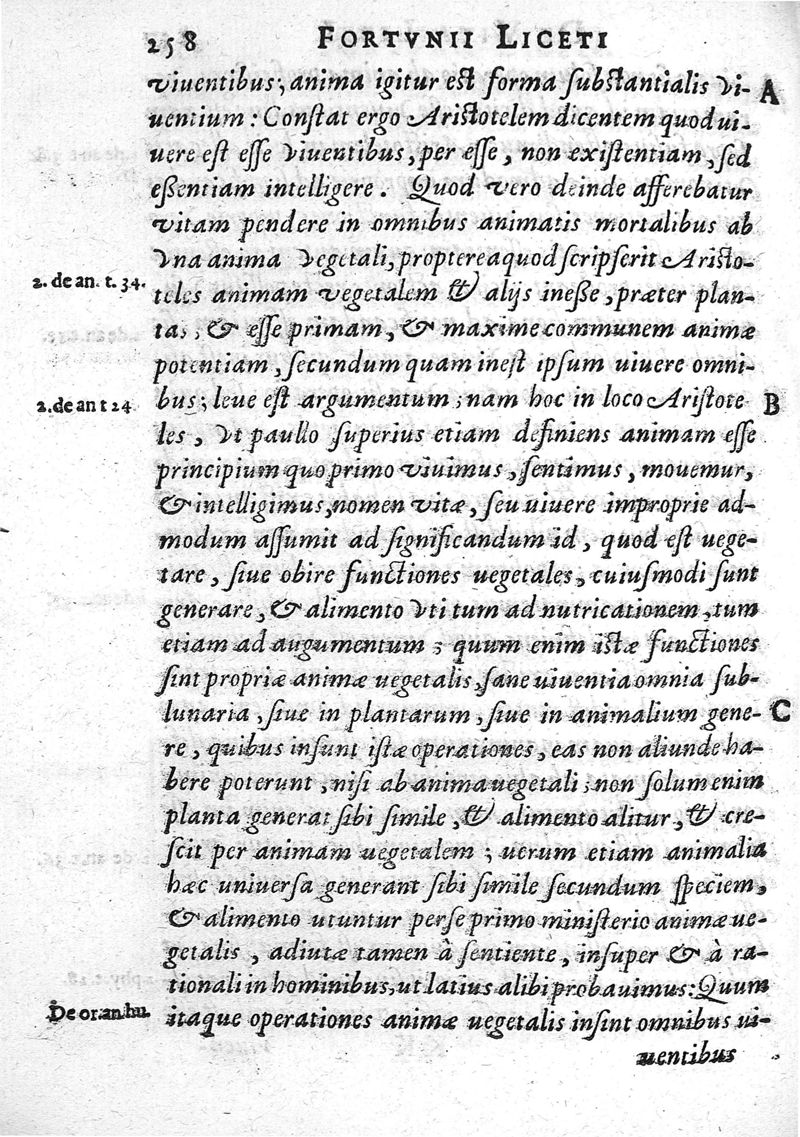 258 FORTVNII LICETI
viuentibus; anima igitur est forma substantialis vi- A
uentium: Constat ergo Aristotelem dicentem quod ui-
uere est esse viuentibus, per esse, non existentiam, sed
essentiam intelligere. Quod vero deinde afferebatur
vitam pendere in omnibus animatis mortalibus ab
vna anima vegetali, propterea quod scripserit Aristo-
2. de an. t. 34. teles animam vegetalem & alijs inesse, præter plan-
tas, & esse primam, & maxime communem animæ
potentiam, secundum quam inest ipsum uiuere omni-
2. de an t 24 bus; leue est argumentum; nam hoc in loco Aristote B
les, vt paullo superius etiam definiens animam esse
principium quo primo viuimus, sentimus, mouemur,
& intelligimus, nomen vitæ, seu uiuere improprie ad-
modum assumit ad significandum id, quod est uege-
tare, siue obire functiones uegetales, cuiusmodi sunt
generare, & alimento vti tum ad nutricationem, tum
etiam ad augumentum; quum enim istæ functiones
sint propriæ animæ uegetalis, sane uiuentia omnia sub-
lunaria, siue in plantarum, siue in animalium gene- C
re, quibus insunt istæ operationes, eas non aliunde ha-
bere poterunt, nisi ab anima uegetali; non solum enim
planta generat sibi simile, & alimento alitur, & cre-
scit per animam uegetalem; uerum etiam animalia
hæc uniuersa generant sibi simile secundum speciem,
& alimento utuntur per se primo ministerio animæ ue-
getalis, adiutæ tamen à sentiente, insuper & à ra-
tionali in hominibus, ut latius alibi probauimus: Quum
De or. an. hu. itaque operationes animæ uegetalis insint omnibus ui-
uentibus